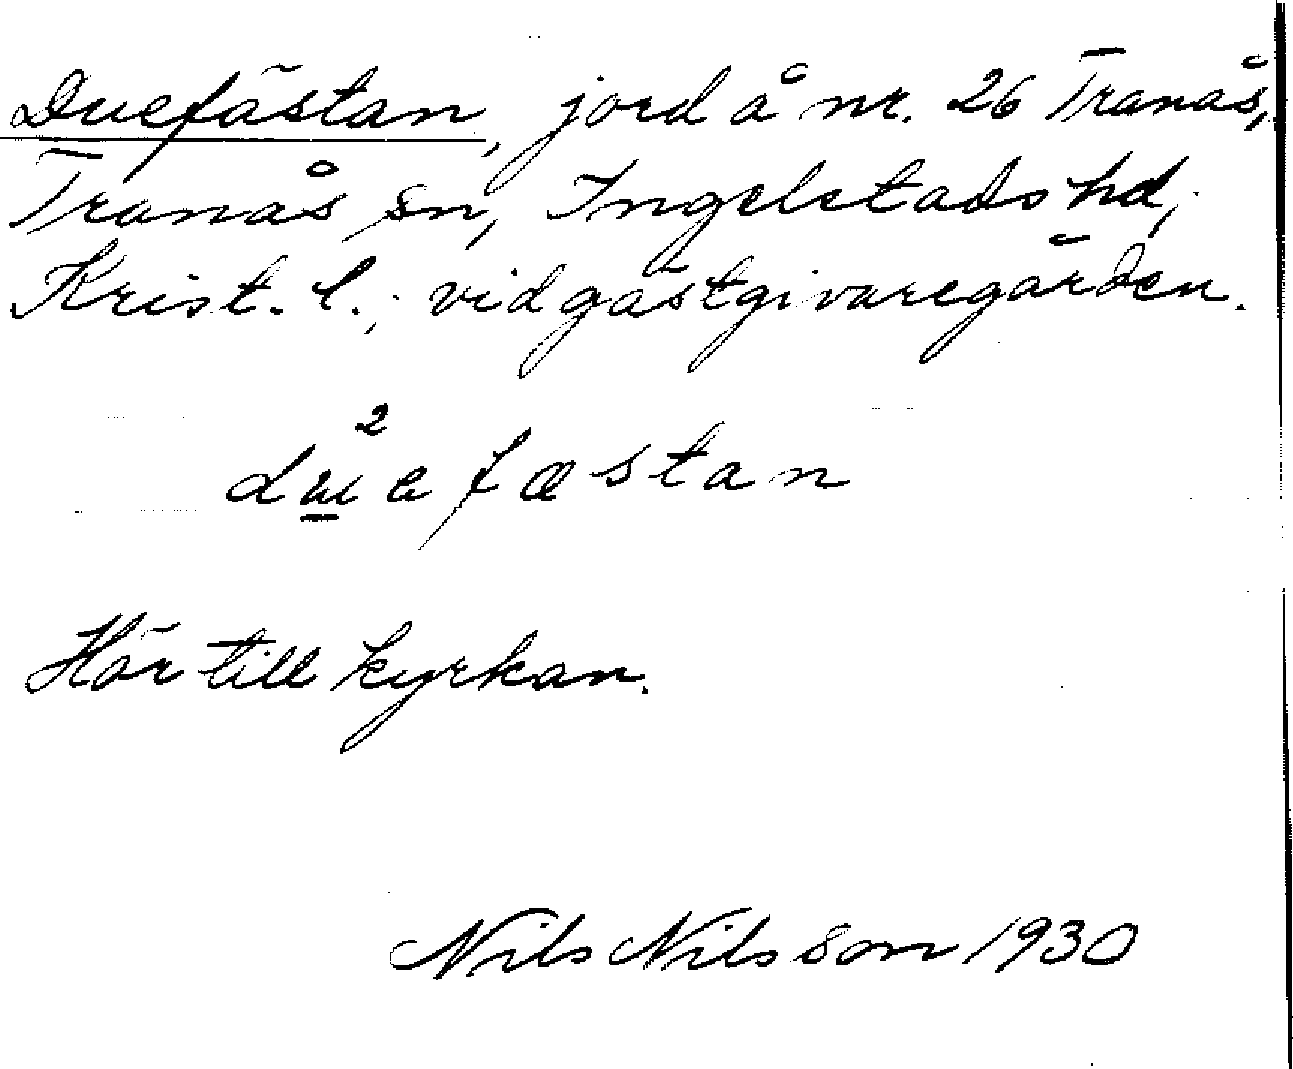 Duefästan, jord å nr. 26 Tranås,
Tranås sn, Ingelstads hd,
Krist. l.; vid gästgivaregården.
du²efæstan
Hör till kyrkan.
Nils Nilsson 1930